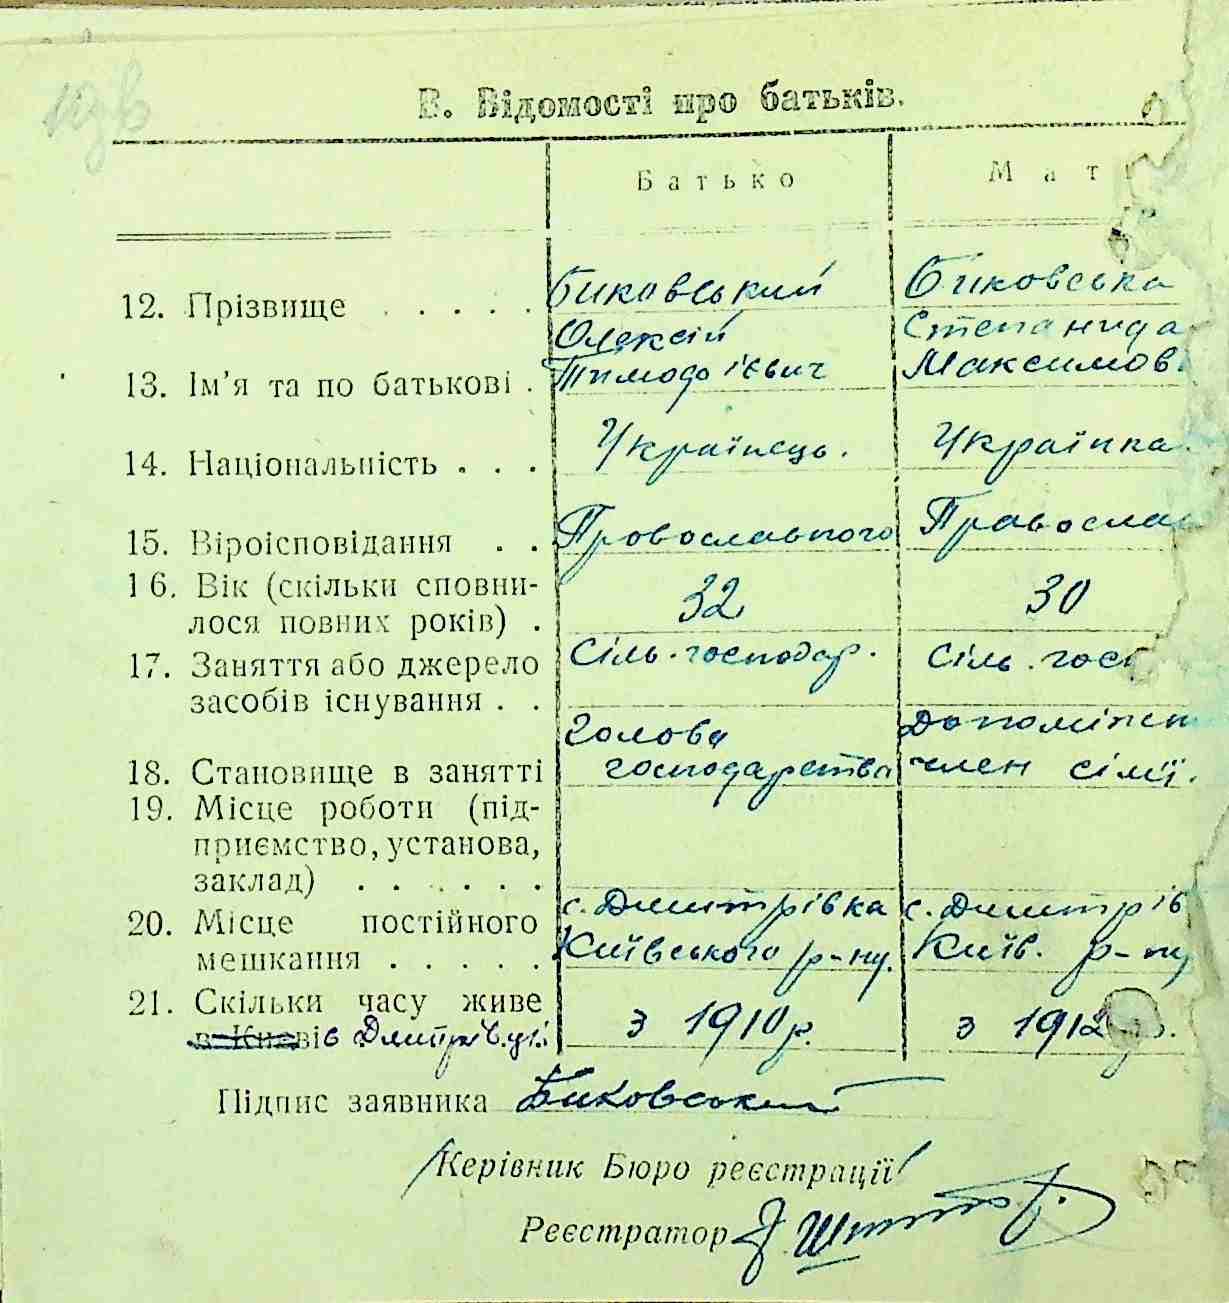 В. Відомості про батьків.
Батько Маті
12. Прізвище . . . . . Биковський Биковська
Олексій Степанида
13. Ім'я та по батькові . Тимофієвич Максимов
14. Національність . . . Українець. Українка.
15. Віроісповідання . . Провославного Православ
16. Вік (скільки сповни-
лося повних років) . 32 30
17. Заняття або джерело Сіль. господар. Сіль. гос
засобів існування . .
Голова Допоміжн
18. Становище в занятті господарства член сімї.
19. Місце роботи (під-
приємство, установа,
заклад) . . . . . .
с. Дмитрівка с. Дмитрів
20. Місце постійного
мешкання . . . . . Київського р-ну. Київ. р-ну
21. Скільки часу живе
в Києві в Дмитрівці з 1910 р. з 1912 р.
Підпис заявника Биковський
Керівник Бюро реєстрації
Реєстратор